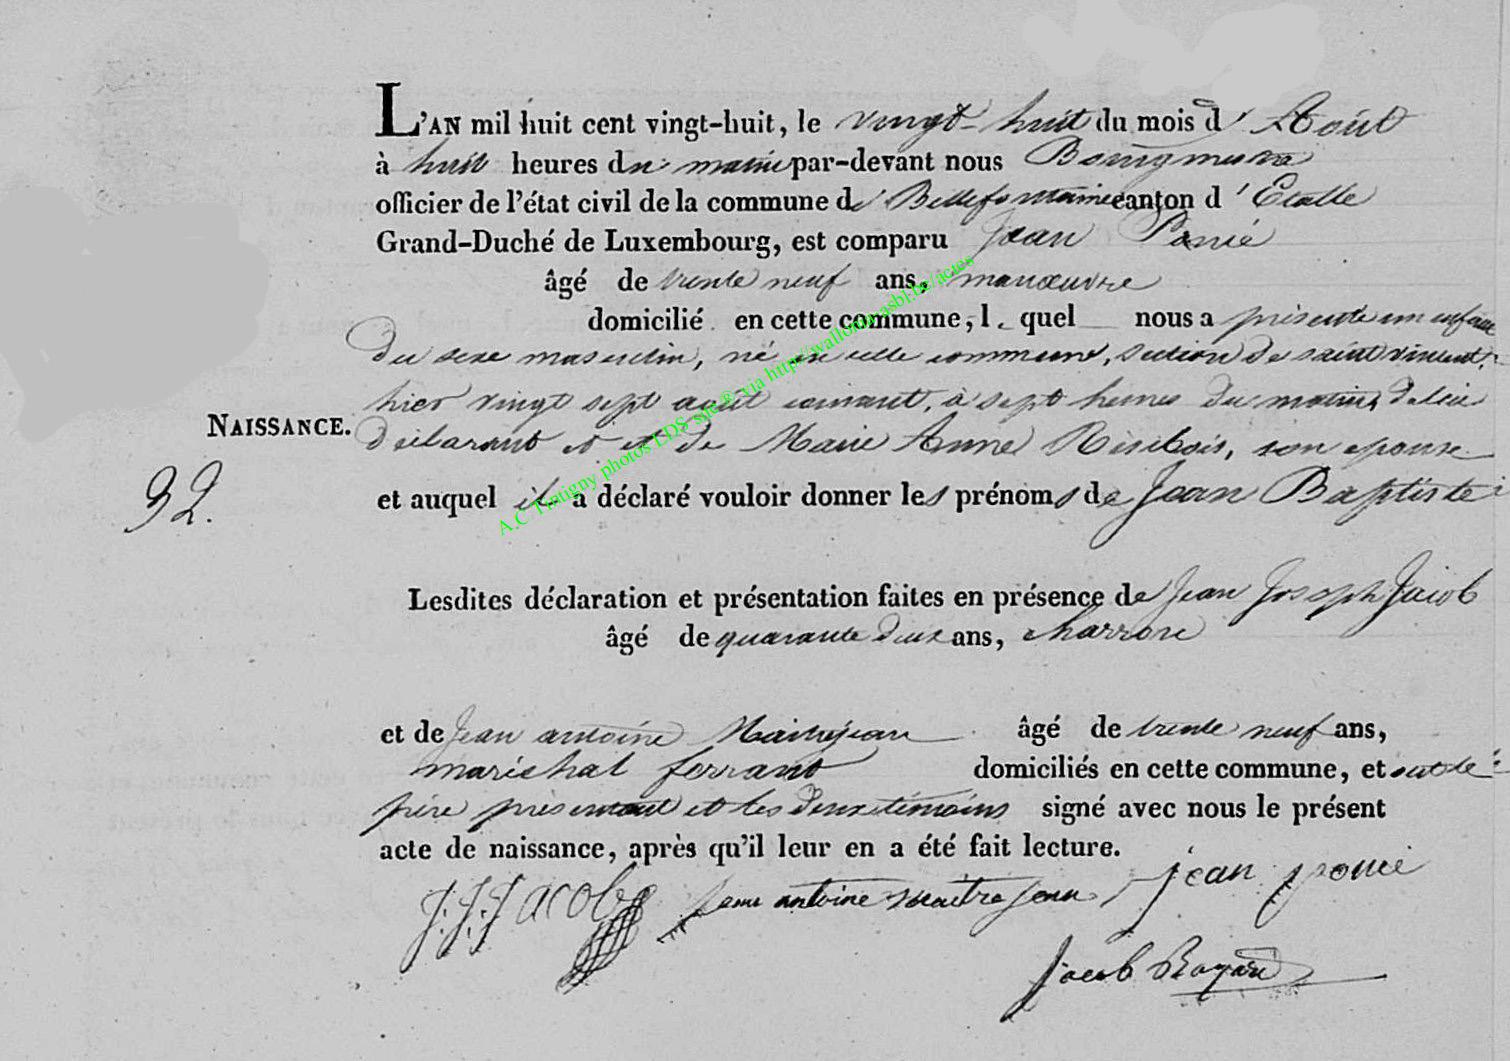 L'AN mil huit cent vingt-huit, le vingt-huit du mois d'Août
à huit heures du matin par-devant nous Bourgmestre
officier de l'état civil de la commune de Bellefontaine canton d'Etalle
Grand-Duché de Luxembourg, est comparu Jean Ponié
âgé de trente neuf ans, manœuvre
domicilié en cette commune, lequel nous a présenté un enfant
du sexe masculin, né en cette commune, section de saint vincent,
hier vingt sept août courant, à sept heures du matin, de lui
NAISSANCE.
déclarant et de Marie Anne Resibois, son epouse
32.
et auquel il a déclaré vouloir donner les prénoms de Jean Baptiste
Lesdites déclaration et présentation faites en présence de Jean Joseph Jacob
âgé de quarante deux ans, charron
et de Jean antoine Maitrejean âgé de trente neuf ans,
maréchal ferrant domiciliés en cette commune, et ont le
père présentant et les deux témoins signé avec nous le présent
acte de naissance, après qu'il leur en a été fait lecture.
J.J. Jacob jean antoine maitre jean jean ponié
Jacob
A.C Tintigny photos LDS site® via http//wallonia-asbl.be/actes